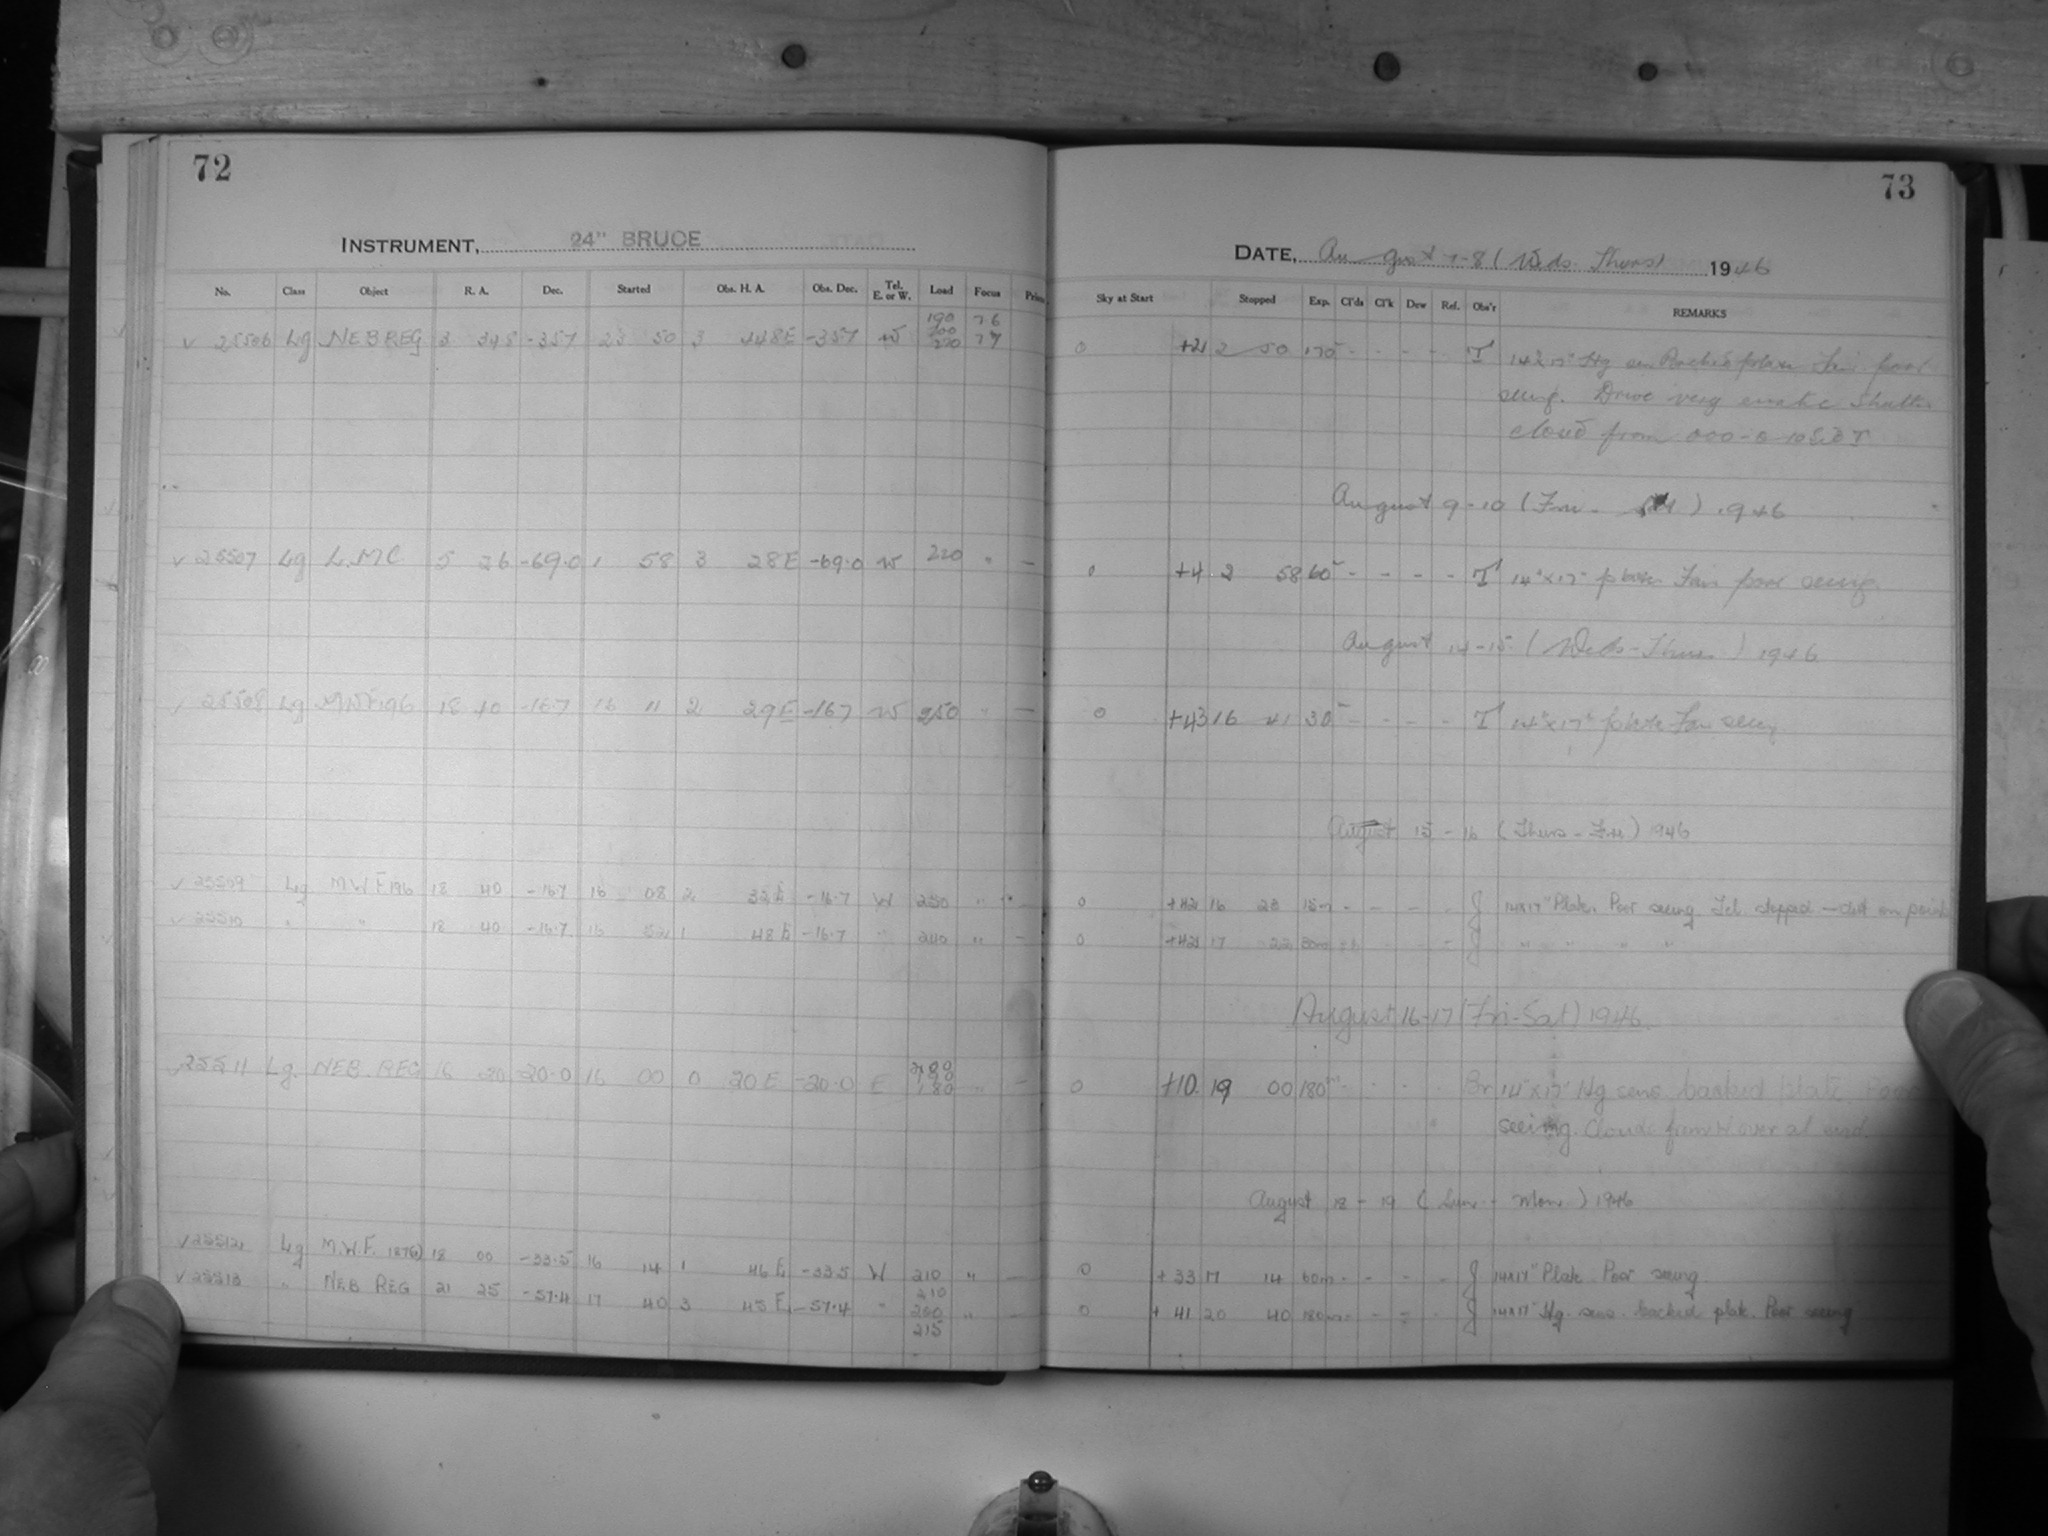 72
INSTRUMENT, 24" BRUCE
No. Class Object R. A. Dec. Started Obs. H. A. Obs. Dec. Tel. E. or W. Load Focus
190 76
200
√ 25506 Lg NEB REG 3 34.5 -35.7 23 50 3 448E -35.7 W 220 77
√ 25507 Lg L.M.C 5 26 -69.0 1 58 3 28E -69.0 W 220 " —
√ 25508 Lg MWF196 18 40 -16.7 16 11 2 29E -16.7 W 250 " —
√ 25509 Lg M.W.F196 18 40 -16.7 16 08 2 32E -16.7 W 250 " -
√ 25510 " " 18 40 -16.7 16 52 1 48E -16.7 " 240 " -
√ 25511 Lg. NEB REG 16 20 -20.0 16 00 0 20E -20.0 E 190 180 " -
√ 25512 Lg M.W.F. 187(6) 18 00 -33.5 16 14 1 46E -33.5 W 210 " -
√ 25513 " NEB REG 21 25 -57.4 17 40 3 45E -57.4 " 210 200 215 " -
73
DATE, August 7-8 (Weds. Thurs) 1946
Sky at Start Stopped Exp. Cl'ds Cl'k Dew Ref. Obs'r REMARKS
0 +21 2 50 170 - - - - T 14"x17" Hg sen Backed plate Fair poor
seeing. Drive very erratic Shutter
closed from 000-0 10
August 9-10 (Fri - ) 1946
0 +4 2 58 60 - - - - T 14"x17" plate Fair poor seeing
August 14-15 (Weds-Thurs) 1946
0 +43 16 41 30 - - - - T 14"x17" plate Fair seeing
August 15-16 (Thurs-Fri) 1946
0 +42 16 23 15m - - - - J 14x17" Plate. Poor seeing. Tel. stopped —
0 +42 17 22 30m J " " " "
August 16-17 (Fri-Sat) 1946
0 +10 19 00 180m - - - Br 14"x17" Hg sens. backed plate. Poor
seeing. Clouds from W over at end.
August 18-19 (Sun-Mon) 1946
0 +33 17 14 60m - - - - J 14x17" Plate. Poor seeing
0 +41 20 40 180m - - - - J 14x17" Hg. sens. backed plate. Poor seeing